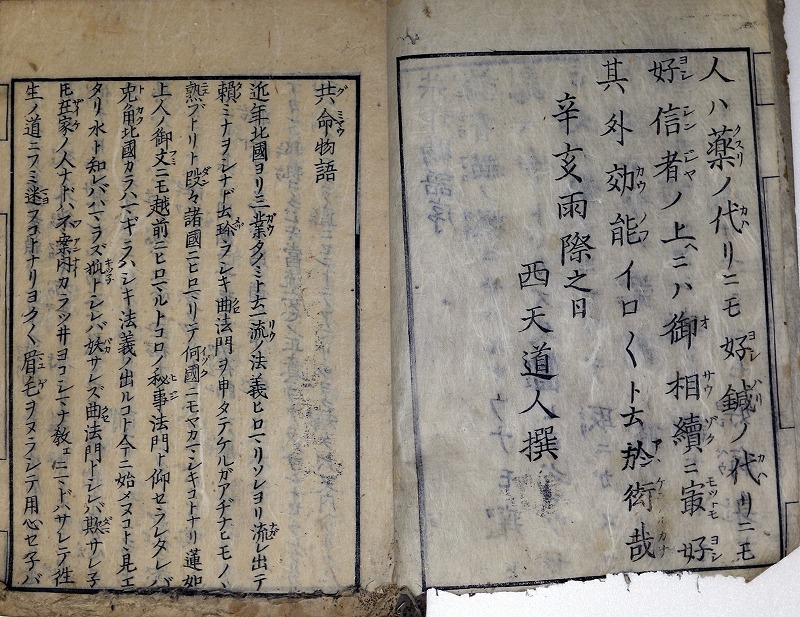 人ハ薬ノ代リニモ好鍼ノ代リニモ
好信者ノ上ヘニハ御相續ニ㝡好
其外効能イロ〱ト云於衒哉
辛亥雨際之日
西天道人撰
共命物語
近年北國ヨリ三業タノミト云一流ノ法義ヒロマリソレヨリ流レ出テ
頼ミナヲシナド云珎ラシキ曲法門ヲ申タテケルガアヂナヒモノヽ
熟ブトリト段々諸國ニヒロマリテ何國ニモマカマシキコトナリ蓮如
上人ノ御文ニモ越前ニヒロマルトコロノ秘事法門ト仰セラレタレバ
兎角北國カラハマギラハシキ法義ノ出ルコト今ニ始メヌコトヽ見エ
タリ水ト知レバハマラズ狐トシレバ妖サレズ曲法門トシレバ欺サレ子
𪜈在家ノ人ナドハ不案内カラツ井ヨコシマナ教ェニマドハサレテ徃
生ノ道ニフミ迷スコトナリヨク〱眉毛ヲヌラシテ用心セ子バ